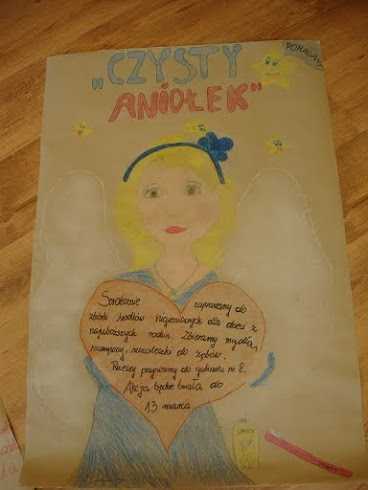 „CZYSTY
ANIOŁEK"
Serdecznie zapraszamy do
zbiórki środków higienicznych dla dzieci z
najuboższych rodzin. Zbieramy mydła,
szampony, szczoteczki do zębów.
Rzeczy przynosimy do gabinetu nr 8.
Akcja będzie trwała do
13 marca